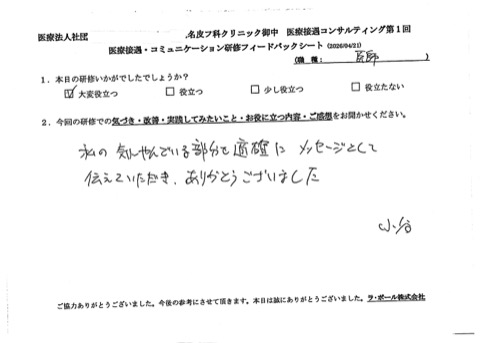 医療法人社団 名皮フ科クリニック御中 医療接遇コンサルティング第1回
医療接遇・コミュニケーション研修フィードバックシート (2026/04/21)
(職 種: 医師 )
1．本日の研修いかがでしたでしょうか？
☑ 大変役立つ □ 役立つ □ 少し役立つ □ 役立たない
2．今回の研修での気づき・改善・実践してみたいこと・お役に立つ内容・ご感想をお聞かせください。
私の 気にやんでいる部分を 適確に メッセージとして
伝えていただき、ありがとうございました
小谷
ご協力ありがとうございました。今後の参考にさせて頂きます。本日は誠にありがとうございました。ラ・ポール株式会社